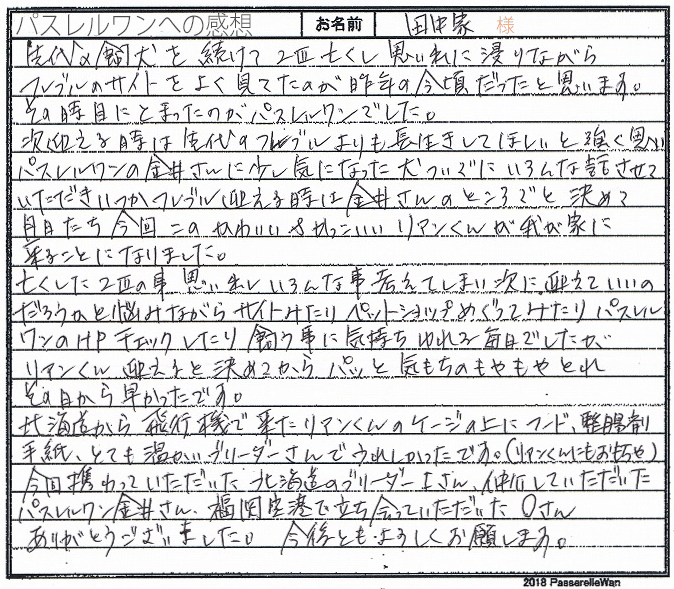 パスレルワンへの感想 お名前 田中家 様
先代の飼犬を続けて2匹亡くし思い出に浸りながら
フレブルのサイトをよく見てたのが昨年の今頃だったと思います。
その時目にとまったのがパスレルワンでした。
次迎える時は先代のフレブルよりも長生きしてほしいと強く思い
パスレルワンの金井さんに少し気になった犬ついでにいろんな話させて
いただきいつかフレブル迎える時は金井さんのところでと決めて
自目たち今回このかわいいかっこいいリアンくんが我が家に
来ることになりました。
亡くした2匹の事思い出しいろんな事考えてしまい次に迎えていいの
だろうかと悩みながらサイトみたりペットショップめぐってみたりパスレル
ワンのHPチェックしたり飼う事に気持ちゆれる毎日でしたが
リアンくん迎えると決めてからパッと気もちのもやもやとれ
その日から早かったです。
北海道から飛行機で来たリアンくんのケージの上にフード、整腸剤
手紙、とても温かいブリーダーさんでうれしかったです。(リアンくんにもおもちゃ)
今回携わっていただいた北海道のブリーダーIさん、仲介していただいた
パスレルワン金井さん、福岡空港で立ち会っていただいたOさん
ありがとうございました。 今後ともよろしくお願します。
2018 PasserelleWan